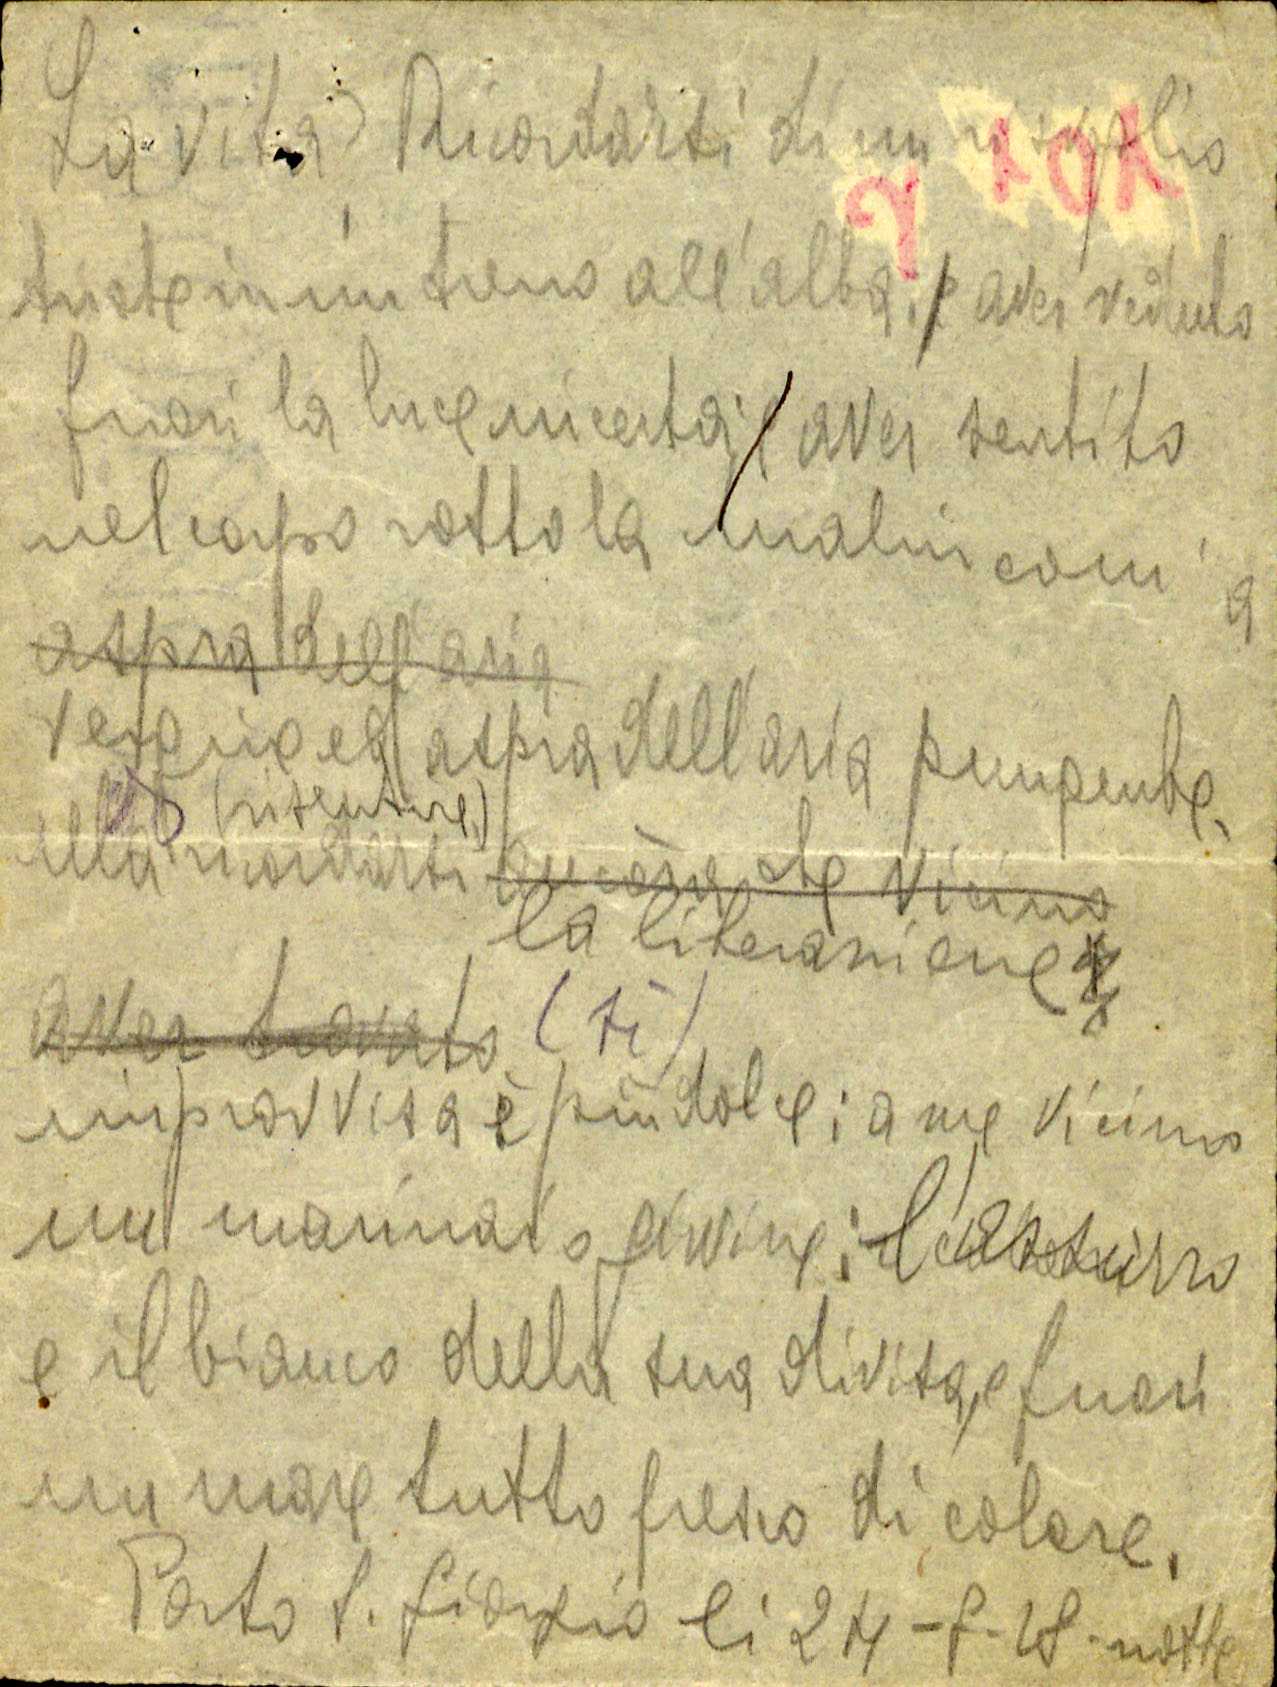 La vita? Ricordarsi di un risveglio
triste in un treno all'alba; e aver veduto
fuori la luce incerta; e aver sentito
nel corpo rotto la malinconia
aspra dell'aria
vergine ed aspra dell'aria pungente.
(risentire)
Ma ricordarsi ancora che vicino
la liberazione
aver trovato (sì)
improvvisa è più dolce: a me vicino
un marinaio giovine: l'azzurro
e il bianco della sua divisa, e fuori
un mare tutto fresco di colore.
Porto S. Giorgio li 24-8-28-notte